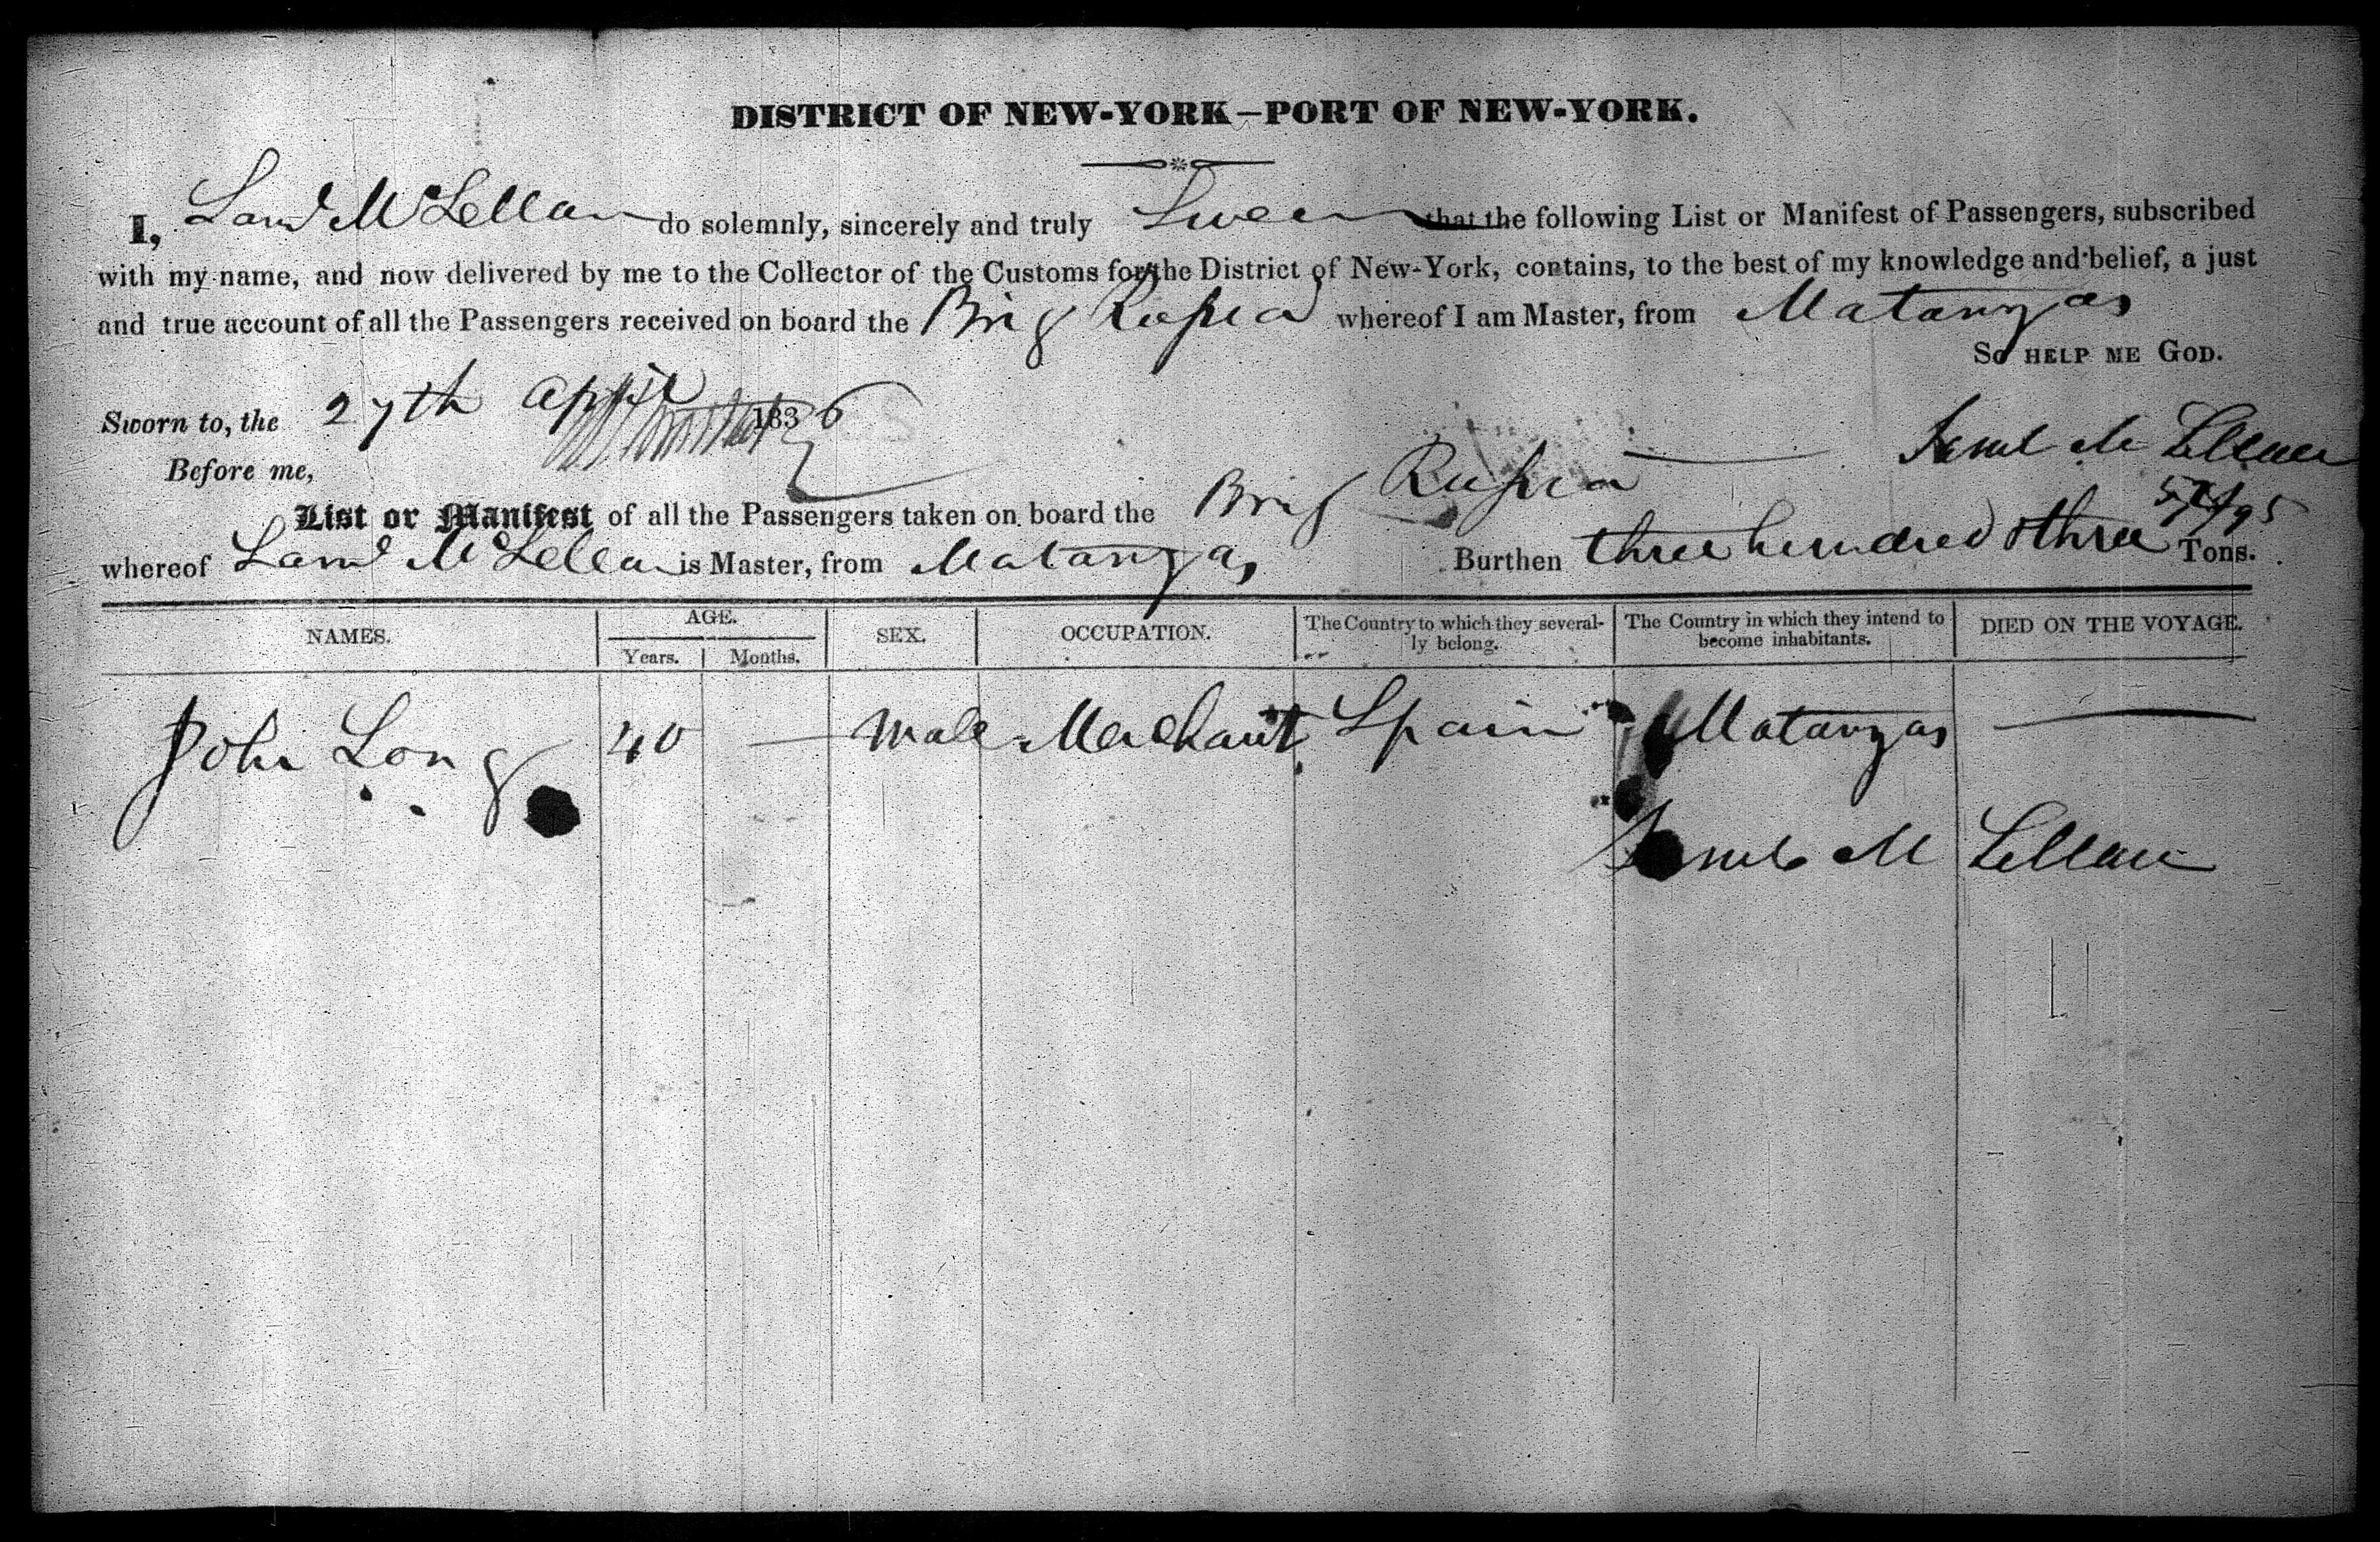 DISTRICT OF NEW-YORK—PORT OF NEW-YORK.
I, Saml McLellan do solemnly, sincerely and truly Swear that the following List or Manifest of Passengers, subscribed
with my name, and now delivered by me to the Collector of the Customs for the District of New-York, contains, to the best of my knowledge and belief, a just
and true account of all the Passengers received on board the Brig Russia whereof I am Master, from Matanzas
So HELP ME GOD.
Sworn to, the 27th April 1836
Saml McLellan
Before me,
List or Manifest of all the Passengers taken on board the Brig Russia
whereof Saml McLellan is Master, from Matanzas Burthen three hundred & three /95 Tons.
NAMES. AGE. SEX. OCCUPATION. The Country to which they several- The Country in which they intend to DIED ON THE VOYAGE.
Years. Months. ly belong. become inhabitants.
John Long 40 — Male Merchant Spain Matanzas —
Saml McLellan